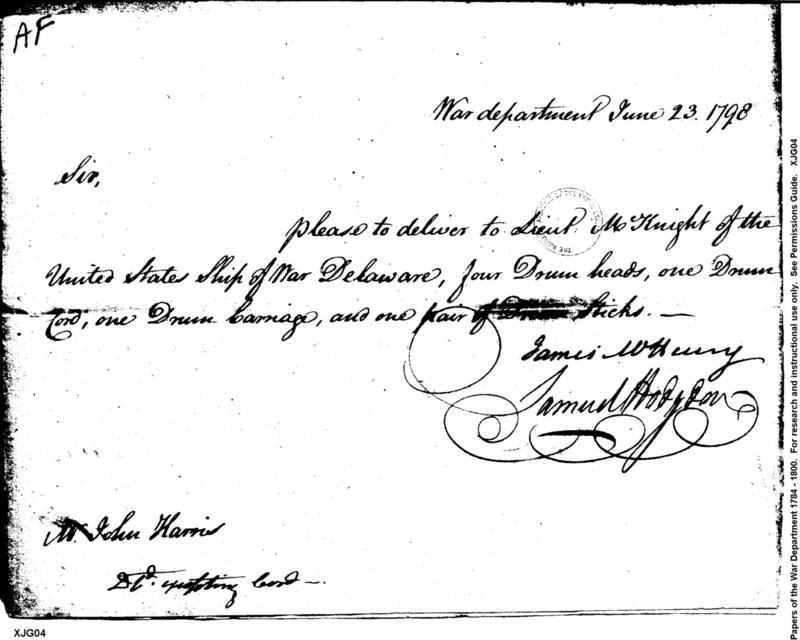 AF
War department June 23. 1798
Sir,
please to deliver to Lieut. McKnight of the
United States Ship of War Delaware, four Drum heads, one Drum
Cord, one Drum Carriage, and one pair of Drum Sticks. —
James McHenry
Samuel Hodgdon
Mr. John Harris
Dd. excepting Cord —.
XJG04
Papers of the War Department 1784 - 1800. For research and instructional use only. See Permissions Guide. XJG04